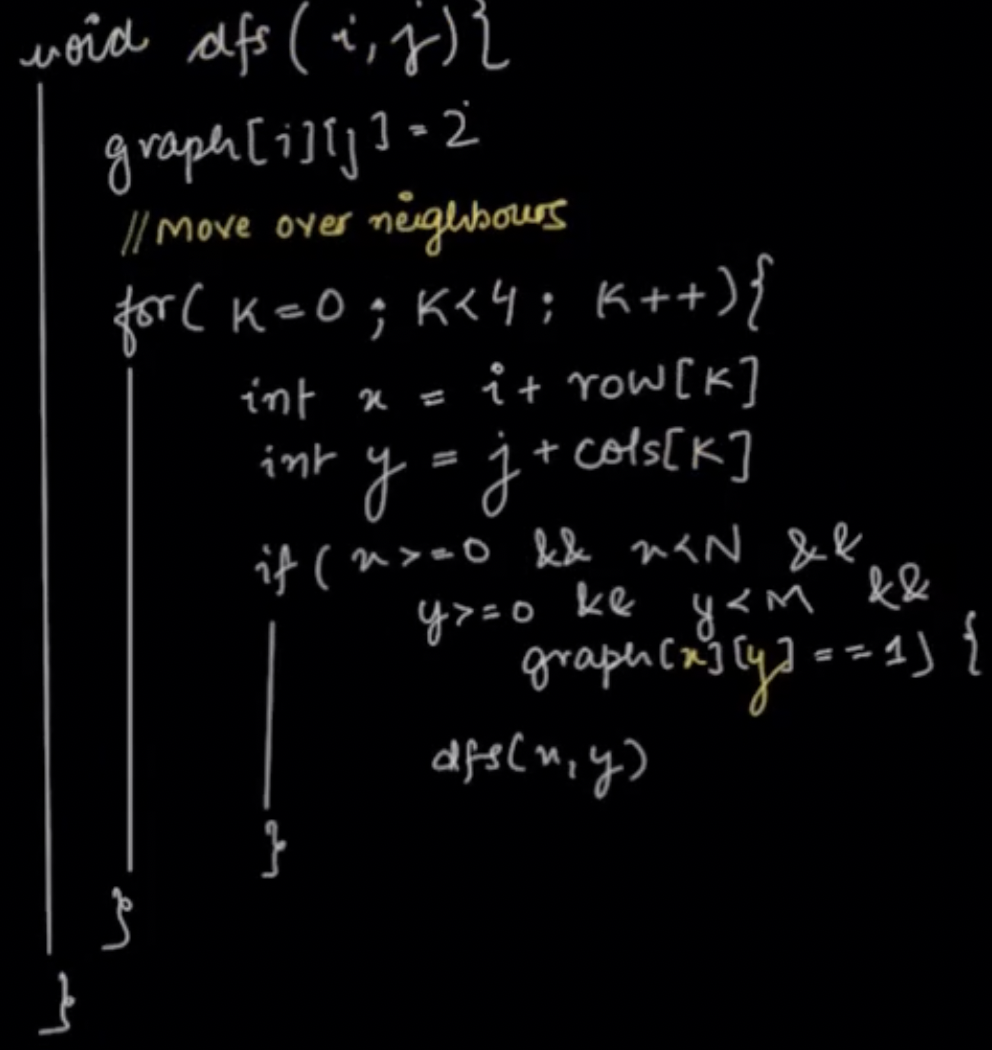 void dfs ( i, j){
graph[i][j] = 2
// Move over neighbours
for( K=0 ; K<4 ; K++){
int x = i + row[K]
int y = j + cols[K]
if ( x >= 0 && x<N &&
y>=0 && y<M &&
graph[x][y] == 1) {
dfs(x, y)
}
}
}